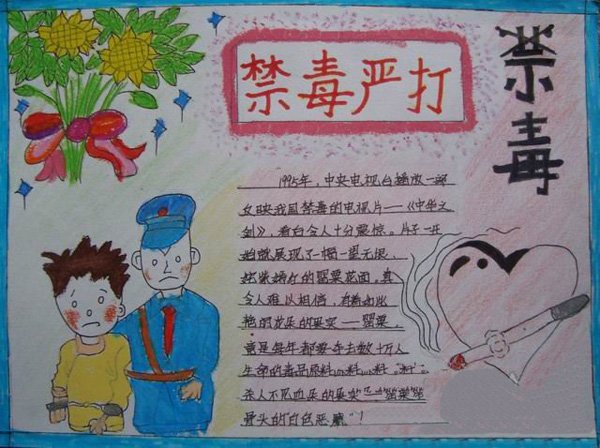 禁毒严打
禁毒
1995年,中央电视台播放一部
反映我国禁毒的电视片——《中华之
剑》,看白令人十分震惊。片子一开
始就展现了一幅一望无垠、
姹紫嫣红的罂粟花画。真
令人难以相信,有着如此
艳丽花朵的果实——罂粟,
竟是每年都要夺去数十万人
生命的毒品原料
杀人不见血朵的果实 "罂粟"
骨头的白色恶魔"!